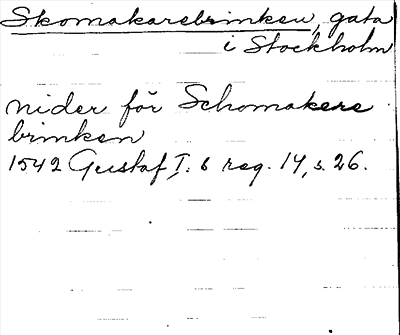 Skomakarebrinken, gata
i Stockholm
nider för Schomakere
brinken
1542 Gustaf I:s reg. 14, s. 26.